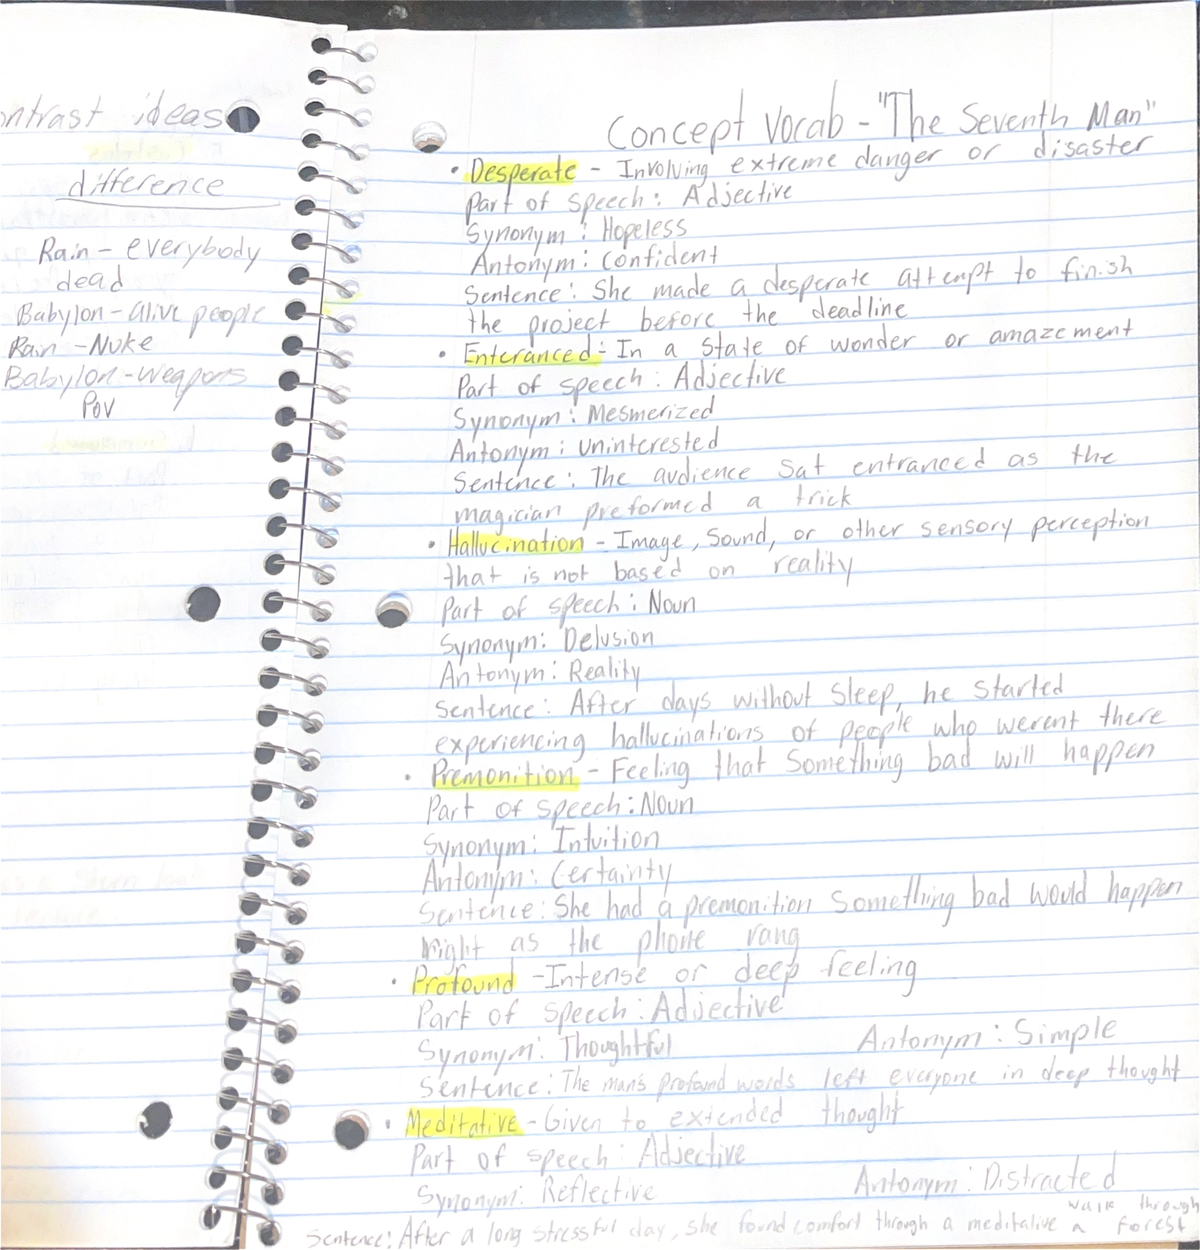 ntrast ideas
difference
Rain - everybody
dead
Babylon - alive people
Rain - Nuke
Babylon - weapons
Pov
Concept Vocab - "The Seventh Man"
• Desperate - Involving extreme danger or disaster
Part of speech: Adjective
Synonym: Hopeless
Antonym: Confident
Sentence: She made a desperate attempt to finish
the project before the deadline
• Enteranced - In a State of wonder or amazement
Part of speech: Adjective
Synonym: Mesmerized
Antonym: uninterested
Sentence: The audience sat entranced as the
magician preformed a trick
• Hallucination - Image, Sound, or other sensory perception
that is not based on reality
Part of speech: Noun
Synonym: Delusion
Antonym: Reality
Sentence: After days without sleep, he started
experiencing hallucinations of people who werent there
• Premonition - Feeling that Something bad will happen
Part of speech: Noun
Synonym: Intuition
Antonym: Certainty
Sentence: She had a premonition Something bad would happen
Right as the phone rang
• Profound - Intense or deep feeling
Part of speech: Adjective
Synonym: Thoughtful Antonym: Simple
Sentence: The man's profound words left everyone in deep thought
• Meditative - Given to extended thought
Part of speech: Adjective
Synonym: Reflective Antonym: Distracted
walk through
Sentence: After a long stressful day, she found comfort through a meditative a forest